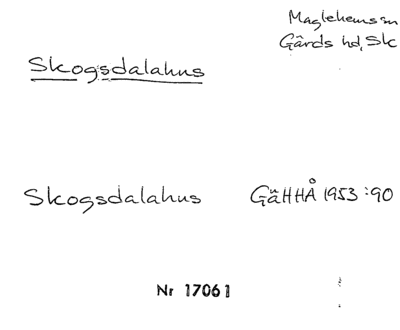 Maglehems sn
Gärds hd, Sk
Skogsdalahus
Skogsdalahus GäHHÅ 1953:90
Nr 17061